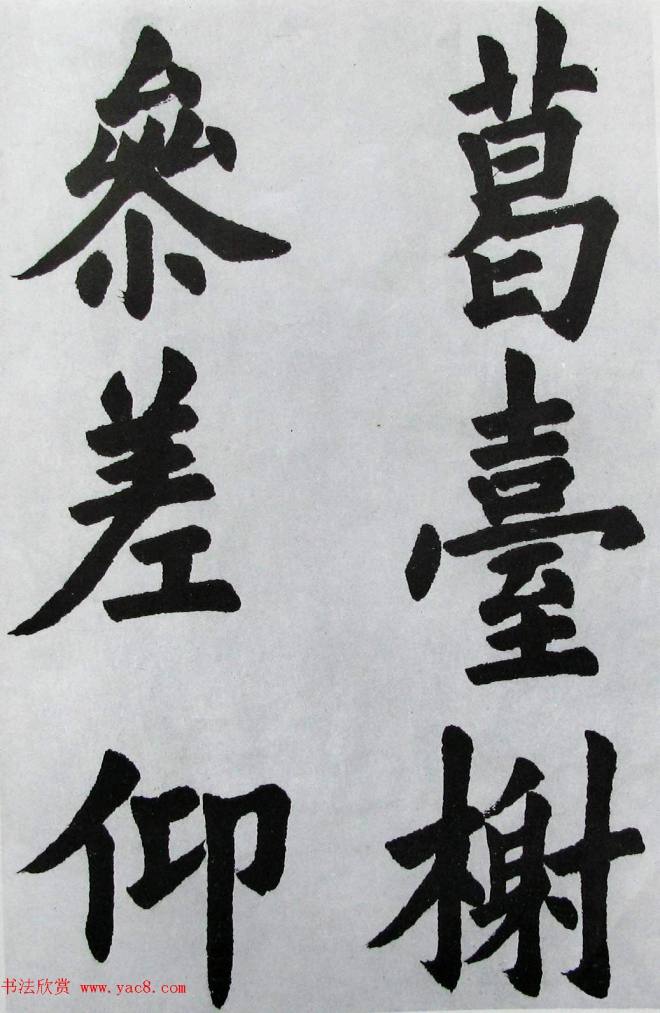 葛臺榭
參差仰
书法欣赏 www.yac8.com